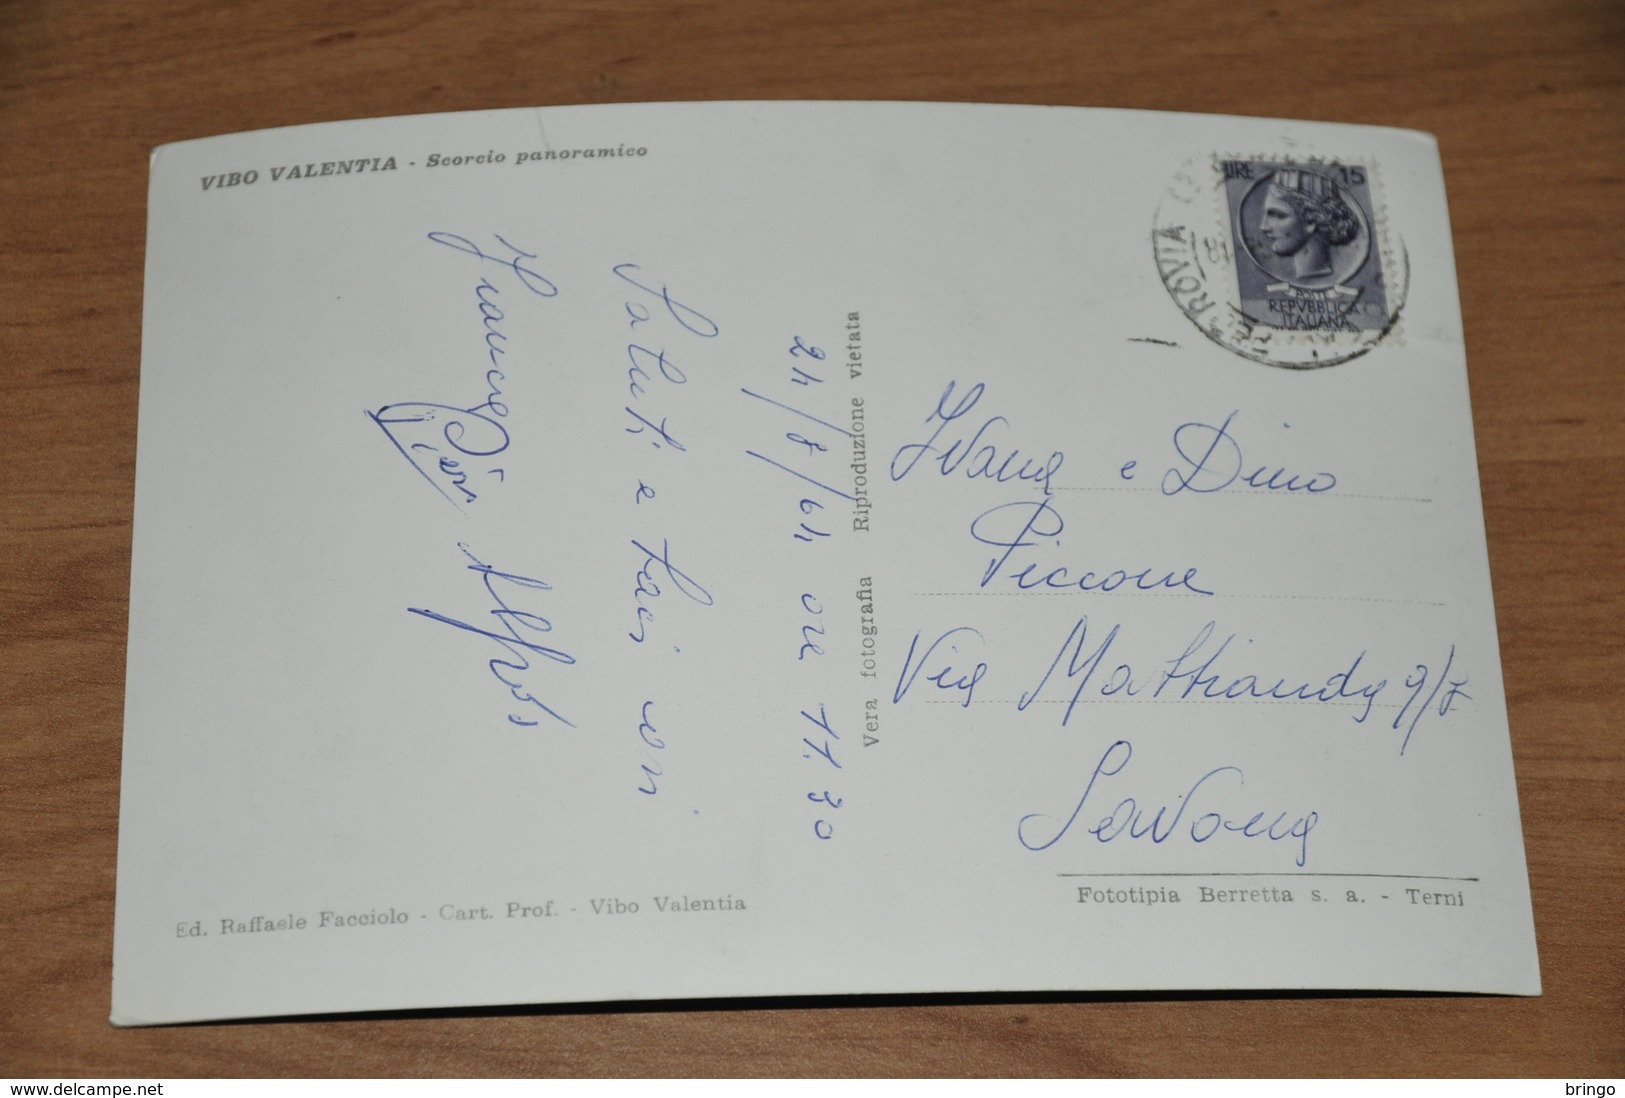 VIBO VALENTIA - Scorcio panoramico
24/8/64 ore 11.30
Saluti e baci
Vera fotografia Riproduzione vietata
LIRE 15
POSTE
REPVBBLICA
ITALIANA
ROVIA
Ivana e Dino
Piccone
Via 9/7
Savona
Fototipia Berretta s. a. - Terni
Ed. Raffaele Facciolo - Cart. Prof. - Vibo Valentia
www.delcampe.net
bringo